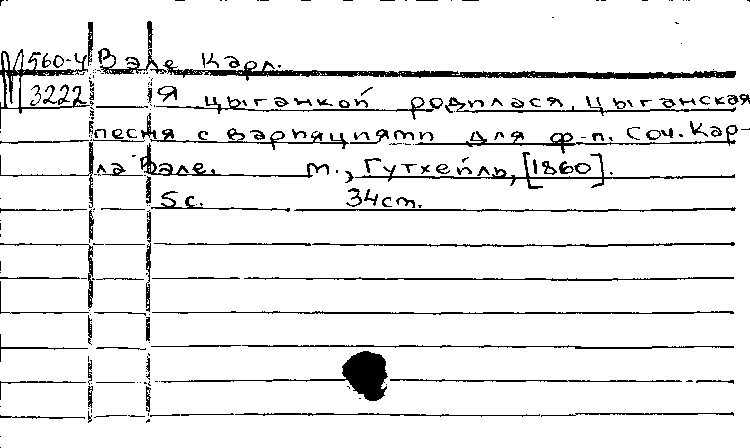 М 560-4 Вэле, Карл.
3222 Я цыганкой родилася. Цыганская
песня с вариациями для ф-п. Соч. Кар-
ла Вэле. М., Гутхейль, [1860].
5 с. 34 см.